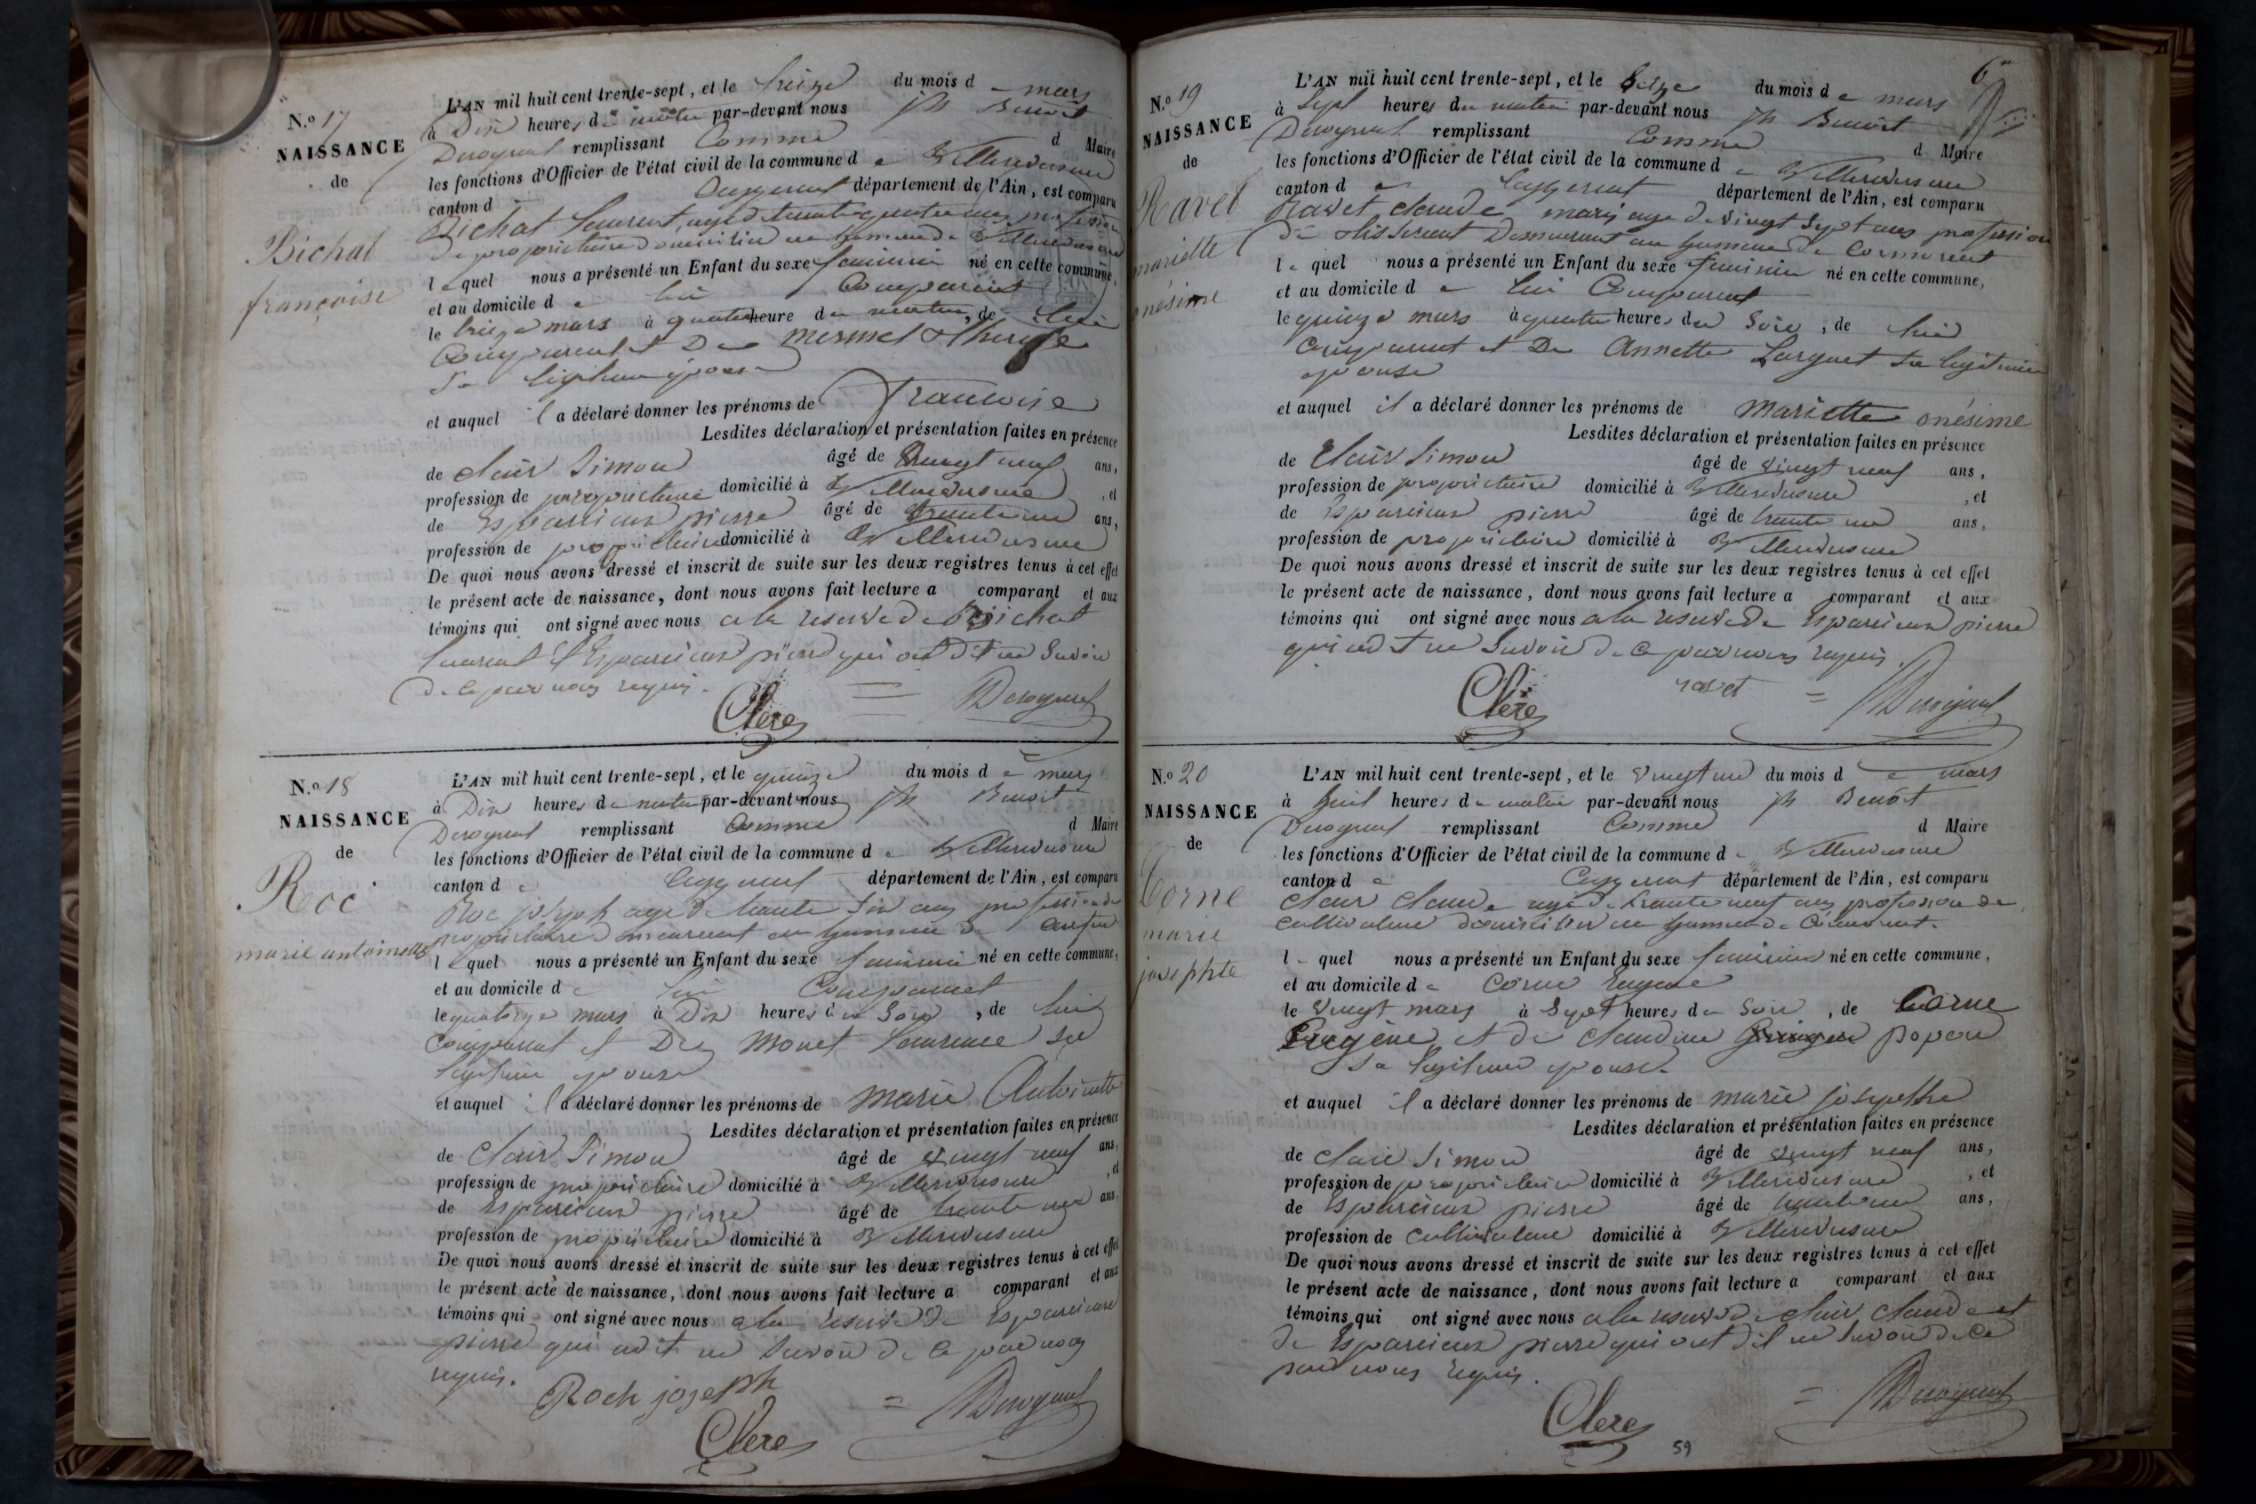 N.o 17
NAISSANCE
de
Bichat
françoise
L'AN mil huit cent trente-sept, et le treize du mois d e mars
à Dix heures d u matin par-devant nous jh Benoit
Deroguat remplissant Comme d Maire
les fonctions d'Officier de l'état civil de la commune d e Villereversure
canton d e Ceyzeriat département de l'Ain, est comparu
Bichat Laurent, agé de trente quatre ans profession
de propriétaire domicilié en commune de Villereversure
l e quel nous a présenté un Enfant du sexe feminin né en cette commune,
et au domicile d e lui Comparant
le treize mars à quatre heure du matin, de lui
Comparant et De mermet therese
Sa légitime épouse
et auquel il a déclaré donner les prénoms de francoise
Lesdites déclaration et présentation faites en présence
de Clair Simon âgé de vingt neuf ans,
profession de propriétaire domicilié à Villereversure, et
de Esparcieux pierre âgé de trente un ans,
profession de propriétaire domicilié à Villereversure
De quoi nous avons dressé et inscrit de suite sur les deux registres tenus à cet effet
le présent acte de naissance, dont nous avons fait lecture a comparant et aux
témoins qui ont signé avec nous a la reserve de Bichat
Laurent et Esparcieux pierre qui ont dit ne Savoir
de ce par nous requis.
Clere Deroguat
N.o 18
NAISSANCE
de
Roc
marie antoinette
L'AN mil huit cent trente-sept, et le quinze du mois d e mars
à Dix heures d u matin par-devant nous jh Benoit
Deroguat remplissant Comme d Maire
les fonctions d'Officier de l'état civil de la commune d e Villereversure
canton d e Ceyzeriat département de l'Ain, est comparu
Roc joseph agé de trente Six ans profession de
propriétaire demeurant en commune de
l e quel nous a présenté un Enfant du sexe feminin né en cette commune,
et au domicile d e lui Comparant
le quatorze mars à Dix heures du Soir, de lui
Comparant et De Monet Laurence sa
légitime epouse
et auquel il a déclaré donner les prénoms de marie Antoinette
Lesdites déclaration et présentation faites en présence
de Clair Simon âgé de vingt neuf ans,
profession de propriétaire domicilié à Villereversure, et
de Esparcieux pierre âgé de trente un ans,
profession de propriétaire domicilié à Villereversure
De quoi nous avons dressé et inscrit de suite sur les deux registres tenus à cet effet
le présent acte de naissance, dont nous avons fait lecture a comparant et aux
témoins qui ont signé avec nous a la reserve de Esparcieux
pierre qui a dit ne Savoir de ce par nous
requis.
Roch joseph
Clere Deroguat
6
N.o 19
NAISSANCE
de
Ravet
mariette
onésime
L'AN mil huit cent trente-sept, et le Seize du mois d e mars
à Sept heures du matin par-devant nous jh Benoit
Deroguat remplissant Comme d Maire
les fonctions d'Officier de l'état civil de la commune d e Villereversure
canton d e Ceyzeriat département de l'Ain, est comparu
Ravet claude marie agé de Vingt Sept ans profession
de tisserant Demeurant en commune de Cormorent
l e quel nous a présenté un Enfant du sexe feminin né en cette commune,
et au domicile d e lui Comparant
le quinze mars à quatre heures du Soir, de lui
Comparant et De Annette Larguet Sa légitime
epouse
et auquel il a déclaré donner les prénoms de Mariette onésime
Lesdites déclaration et présentation faites en présence
de Clair Simon âgé de vingt neuf ans,
profession de propriétaire domicilié à Villereversure, et
de Esparcieux pierre âgé de trente un ans,
profession de propriétaire domicilié à Villereversure
De quoi nous avons dressé et inscrit de suite sur les deux registres tenus à cet effet
le présent acte de naissance, dont nous avons fait lecture a comparant et aux
témoins qui ont signé avec nous a la reserve de Esparcieux pierre
qui a dit ne Savoir de ce par nous requis.
Clere ravet Deroguat
N.o 20
NAISSANCE
de
Corne
marie
josephte
L'AN mil huit cent trente-sept, et le Vingt un du mois d e mars
à huit heures d u matin par-devant nous jh Benoit
Deroguat remplissant Comme d Maire
les fonctions d'Officier de l'état civil de la commune d e Villereversure
canton d e Ceyzeriat département de l'Ain, est comparu
Clair Claude agé de trente neuf ans profession de
cultivateur domicilié en commune de
l e quel nous a présenté un Enfant du sexe feminin né en cette commune,
et au domicile d e Corne Eugene
le Vingt mars à Sept heures du Soir, de Corne
Eugène et de Claudine popon
Sa légitime epouse
et auquel il a déclaré donner les prénoms de marie josephte
Lesdites déclaration et présentation faites en présence
de Clair Simon âgé de vingt neuf ans,
profession de propriétaire domicilié à Villereversure, et
de Esparcieux pierre âgé de trente un ans,
profession de cultivateur domicilié à Villereversure
De quoi nous avons dressé et inscrit de suite sur les deux registres tenus à cet effet
le présent acte de naissance, dont nous avons fait lecture a comparant et aux
témoins qui ont signé avec nous a la reserve de clair Claude et
de Esparcieux pierre qui ont dit ne Savoir de ce
par nous requis.
Clere Deroguat
59